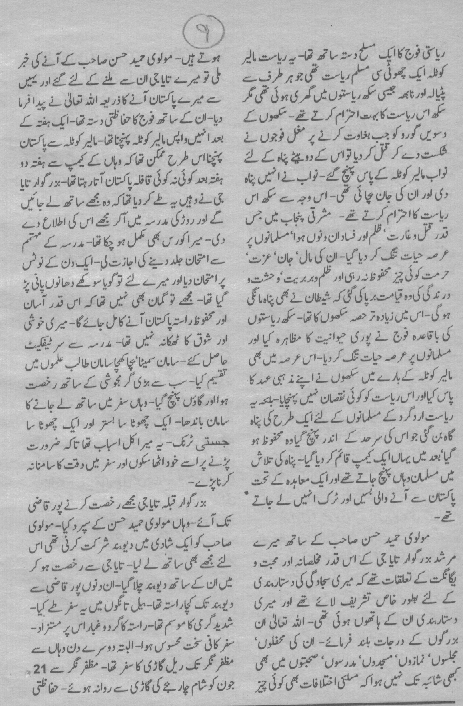 ۹
ریاستی فوج کا ایک مسلح دستہ ساتھ تھا۔ یہ ریاست مالیر
کوٹلہ ایک چھوٹی سی مسلم ریاست تھی جو ہر طرف سے
پٹیالہ اور نابھہ جیسی سکھ ریاستوں میں گھری ہوئی تھی مگر
سکھ اس ریاست کا بہت احترام کرتے تھے۔ سکھوں کے
دسویں گورو کو جب بغاوت کرنے پر مغل فوجوں نے
شکست دے کر قتل کر دیا تو اس کے دو بیٹے پناہ کے لئے
نواب مالیر کوٹلہ کے پاس پہنچ گئے۔ نواب نے انہیں پناہ
دی اور ان کی جان بچائی تھی۔ اس وجہ سے سکھ اس
ریاست کا احترام کرتے تھے۔ مشرقی پنجاب میں جس
قدر قتل و غارت، ظلم اور فساد ان دنوں ہوا، مسلمانوں پر
عرصہ حیات تنگ کر دیا گیا۔ ان کی مال، جان، عزت،
حرمت کوئی چیز محفوظ نہ رہی اور ظلم و بربریت، وحشت و
درندگی کی وہ قیامت برپا کی گئی کہ شیطان نے بھی پناہ مانگی
ہوگی۔ اس میں زیادہ تر حصہ سکھوں کا تھا۔ سکھ ریاستوں
کی باقاعدہ فوج نے پوری حیوانیت کا مظاہرہ کیا اور
مسلمانوں پر عرصہ حیات تنگ کر دیا۔ اس عرصہ میں بھی
مالیر کوٹلہ کے بارے میں سکھوں نے اپنے مذہبی عہد کا
پاس کیا اور اس ریاست کو کوئی نقصان نہیں پہنچایا۔ بلکہ یہ
ریاست اردگرد کے مسلمانوں کے لئے ایک طرح کی پناہ
گاہ بن گئی جو اس کی سرحد کے اندر پہنچ گیا وہ محفوظ ہو
گیا، بعد میں یہاں ایک کیمپ قائم کر دیا گیا۔ پناہ کی تلاش
میں مسلمان وہاں پہنچ جاتے تھے اور ایک معاہدہ کے تحت
پاکستان سے آنے والی بسیں اور ٹرک انہیں لے جاتے
تھے۔
مولوی حمید حسن صاحب کے ساتھ میرے
مرشد بزرگوار تایا جی کے اس قدر مخلصانہ اور محبت و
یگانگت کے تعلقات تھے کہ میری سجادگی کی دستار بندی
کے لئے بطور خاص تشریف لائے تھے اور میری
دستار بندی ان کے ہاتھوں ہوئی تھی۔ اللہ تعالیٰ ان
بزرگوں کے درجات بلند فرمائے۔ ان کی محفلوں،
مجلسوں، نمازوں، مسجدوں، مدرسوں، صحبتوں میں بھی
کبھی شائبہ تک نہیں ہوا کہ مسلکی اختلافات بھی کوئی چیز
ہوتے ہیں۔ مولوی حمید حسن صاحب کے آنے کی خبر
ملی تو میرے تایا جی ان سے ملنے کے لئے گئے اور یہیں
سے میرے پاکستان آنے کا ذریعہ اللہ تعالیٰ نے پیدا فرما
دیا۔ ان کے ساتھ فوج کا حفاظتی دستہ تھا۔ ایک ہفتہ کے
بعد انہیں واپس مالیر کوٹلہ پہنچنا تھا۔ مالیر کوٹلہ سے پاکستان
پہنچنا اس طرح ممکن تھا کہ وہاں کے کیمپ سے ہفتہ دو
ہفتہ بعد کوئی نہ کوئی قافلہ پاکستان آتا رہتا تھا۔ بزرگوار تایا
جی نے وہیں یہ طے کر دیا تھا کہ وہ مجھے ساتھ لے جائیں
گے اور روڑکی مدرسہ میں آ کر مجھے اس کی اطلاع دے
دی۔ میرا کورس بھی مکمل ہو چکا تھا۔ مدرسہ کے مہتمم
سے امتحان جلد دینے کی اجازت لی۔ ایک دن کے نوٹس
پر امتحان دیا اور میرے لئے تو گویا سوکھے دھانوں پانی پڑ
گیا تھا۔ مجھے تو گمان بھی نہیں تھا کہ اس قدر آسان
اور محفوظ راستہ پاکستان آنے کا مل جائے گا۔ میری خوشی
اور شوق کا ٹھکانہ نہیں تھا۔ مدرسہ سے سرٹیفکیٹ
حاصل کئے۔ سامان سمیٹا، بچا کھچا سامان طالب علموں میں
تقسیم کیا۔ سب سے بڑی گرمجوشی کے ساتھ رخصت
ہوا اور گاؤں پہنچ گیا۔ وہاں سفر میں ساتھ لے جانے کا
سامان باندھا۔ ایک چھوٹا سا بستر اور ایک چھوٹا سا
جستی ٹرنک۔ یہ میرا کل اسباب تھا تاکہ ضرورت
پڑنے پر اسے خود اٹھا سکوں اور سفر میں دقت کا سامنا نہ
کرنا پڑے۔
بزرگوار قبلہ تایا جی مجھے رخصت کرنے پور قاضی
تک آئے۔ وہاں مولوی حمید حسن کے سپرد کیا۔ مولوی
صاحب کو ایک شادی میں دیوبند شرکت کرنی تھی اس
لئے مجھے بھی ساتھ لے لیا۔ تایا جی سے رخصت ہو کر
میں ان کے ساتھ دیوبند چلا گیا۔ ان دنوں پور قاضی سے
دیوبند تک کچا راستہ تھا۔ بیل تانگوں میں یہ سفر طے کیا۔
شدید گرمی کا موسم تھا۔ راستہ کا گرد و غبار اس پر مستزاد۔
سفر کافی سخت محسوس ہوا۔ البتہ دوسرے دن وہاں سے
مظفر نگر تک ریل گاڑی کا سفر تھا۔ مظفر نگر سے 21۔
جون کو شام چار بجے کی گاڑی سے روانہ ہوئے۔ حفاظتی